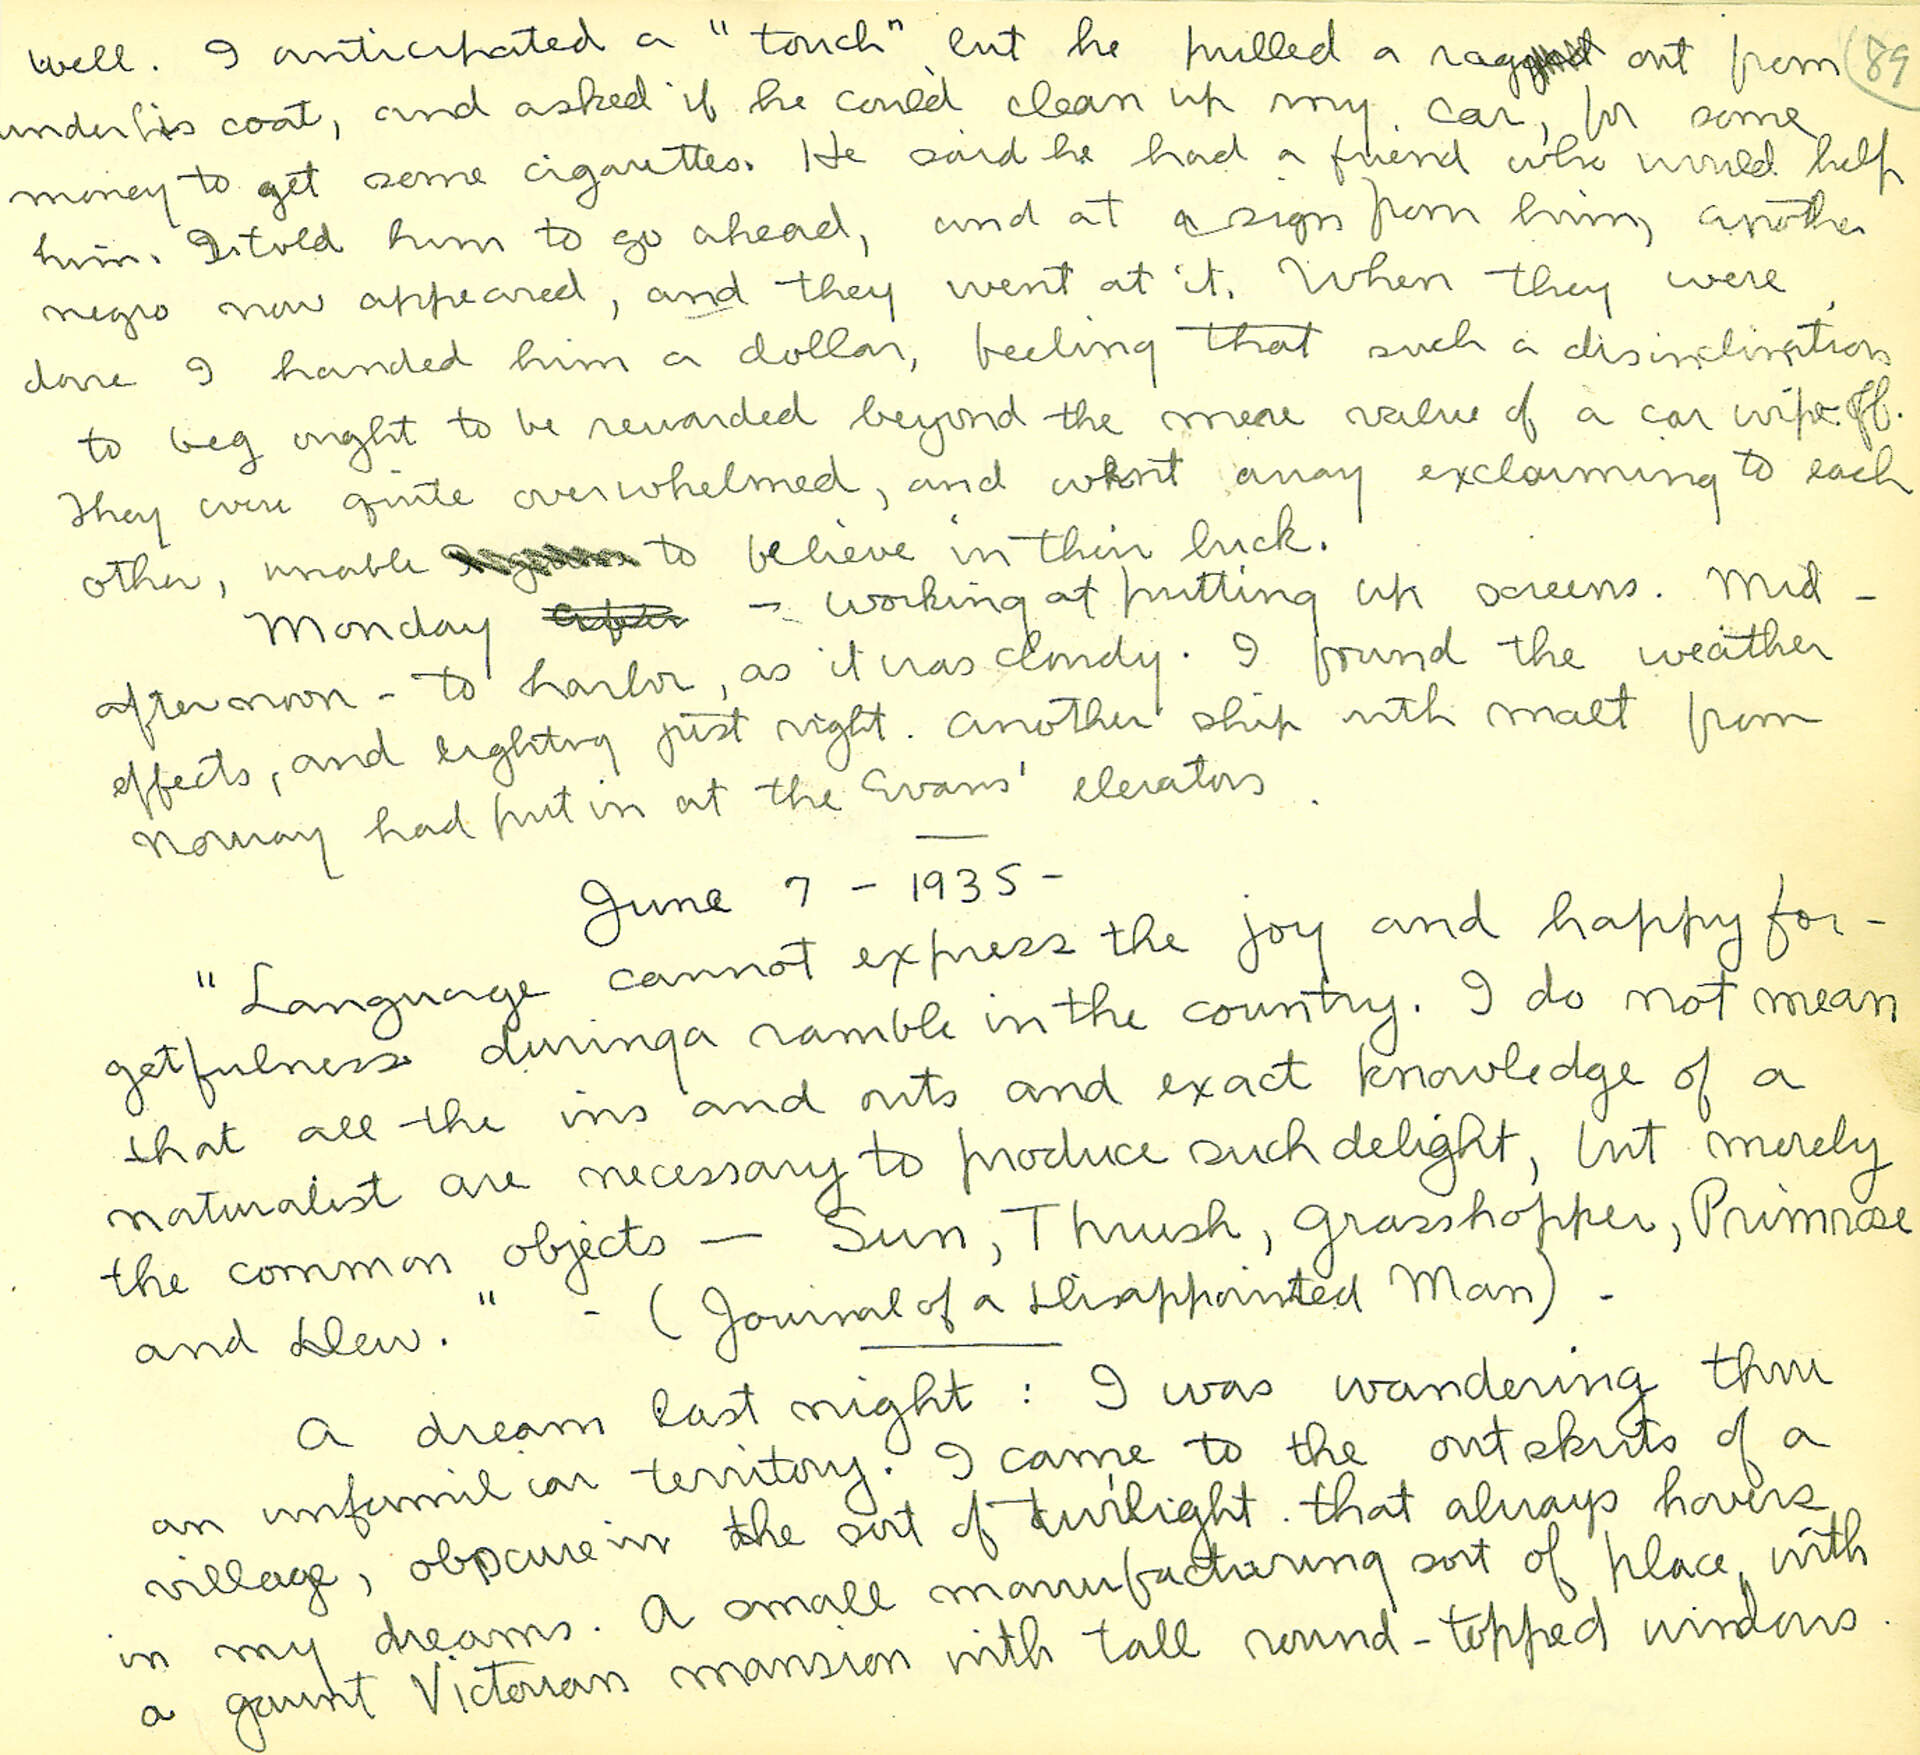 well. I anticipated a "touch" but he pulled a rag out from 89
under his coat, and asked if he could clean up my car, for some
money to get some cigarettes. He said he had a friend who would help
him. I told him to go ahead, and at a sign from him, another
negro now appeared, and they went at it. When they were
done I handed him a dollar, feeling that such a disinclination
to beg ought to be rewarded beyond the mere value of a car wipe-off.
They were quite overwhelmed, and went away exclaiming to each
other, unable to believe in their luck.
Monday after - working at putting up screens. Mid-
afternoon - to harbor, as it was cloudy. I found the weather
effects, and lighting just right. Another ship with malt from
Norway had put in at the Evans' elevators.
June 7 - 1935 -
"Language cannot express the joy and happy for-
getfulness during a ramble in the country. I do not mean
that all the ins and outs and exact knowledge of a
naturalist are necessary to produce such delight, but merely
the common objects — Sun, Thrush, Grasshopper, Primrose
and Dew." - (Journal of a Disappointed Man) -
A dream last night : I was wandering thru
an unfamiliar territory. I came to the outskirts of a
village, obscure in the sort of twilight that always hovers
in my dreams. A small manufacturing sort of place, with
a gaunt Victorian mansion with tall round-topped windows.